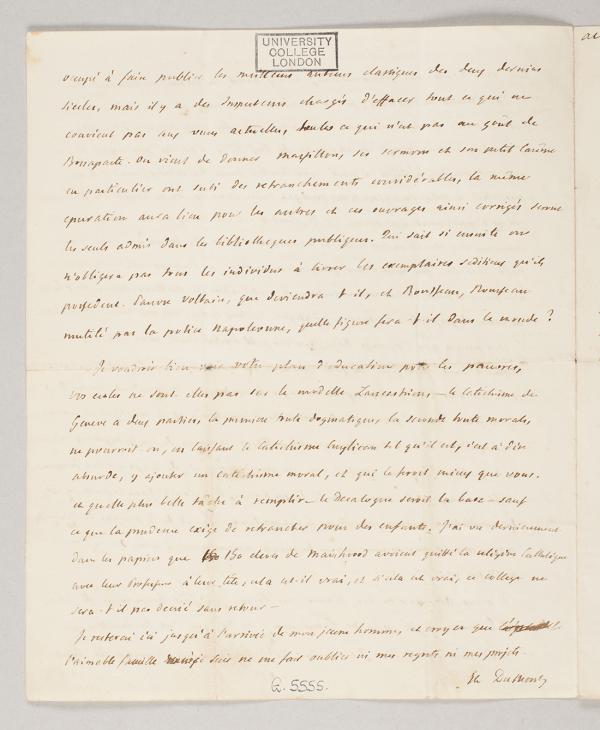 UNIVERSITY
COLLEGE
LONDON
ac
occupé à faire publier les meilleurs auteurs classiques des deux derniers
siecles, mais il y a des Inquisiteurs chargés d'effacer tout ce qui ne
convient pas aux vues actuelles, toutes ce qui n'est pas au goût de
Bonaparte. On vient de donner Massillon, ses sermons et son petit Carême
en particulier ont subi des retranchements considérables, la même
epuration aura lieu pour les autres et ces ouvrages ainsi corrigés seront
les seuls admis dans les bibliotheques publiques. Qui sait si ensuite on
n'obligera pas tous les individus à livrer les exemplaires seditieux qu'ils
possedent. Pauvre Voltaire, que deviendra t il, et Rousseau, Rousseau
mutilé par la police napoleonne, quelle figure fera t il dans le monde ?
Je voudrois bien voir votre plan d'education pour les pauvres,
vos ecoles ne sont elles pas sur le modelle Lancastrien — le catechisme de
Geneve a deux parties, la premiere toute dogmatique, la seconde toute morale,
ne pourroit on, en laissant le Catechisme Anglican tel qu'il est, c'est à dire
absurde, y ajouter un catechisme moral, et qui le feroit mieux que vous.
et quelle plus belle tâche à remplir — le Decalogue seroit la base — sauf
ce que la prudence exige de retrancher pour des enfants. J'ai vu dernierement
dans les papiers que 150 eleves de Mainhood avoient quitté la religion Catholique
avec leur Professeur à leur tête, cela est-il vrai, et si cela est vrai, ce college ne
sera t il pas decrié sans retour —
Je resterai ici jusqu'à l'arrivée de mon jeune homme, et croyez que
l'aimable famille ne me fait oublier ni mes regrets ni mes projets.
Et. Dumont
Q. 5555.